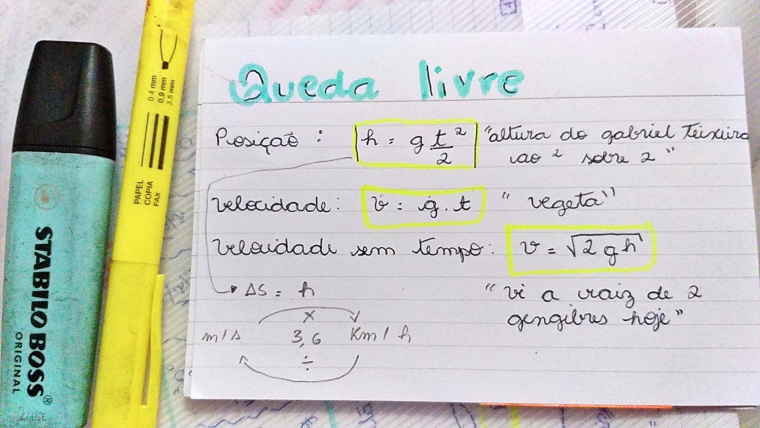 Queda livre
Posição: h = g t²/2 "altura do gabriel Teixeira
ao ² sobre 2"
Velocidade: v = g.t "vegeta"
Velocidade sem tempo: v = √2gh
ΔS = h
"vi a raiz de 2
gengibres hoje"
×
m/s 3,6 Km/h
÷
STABILO BOSS
ORIGINAL
0.4 mm
0,9 mm
3.5 mm
PAPEL
COPIA
FAX